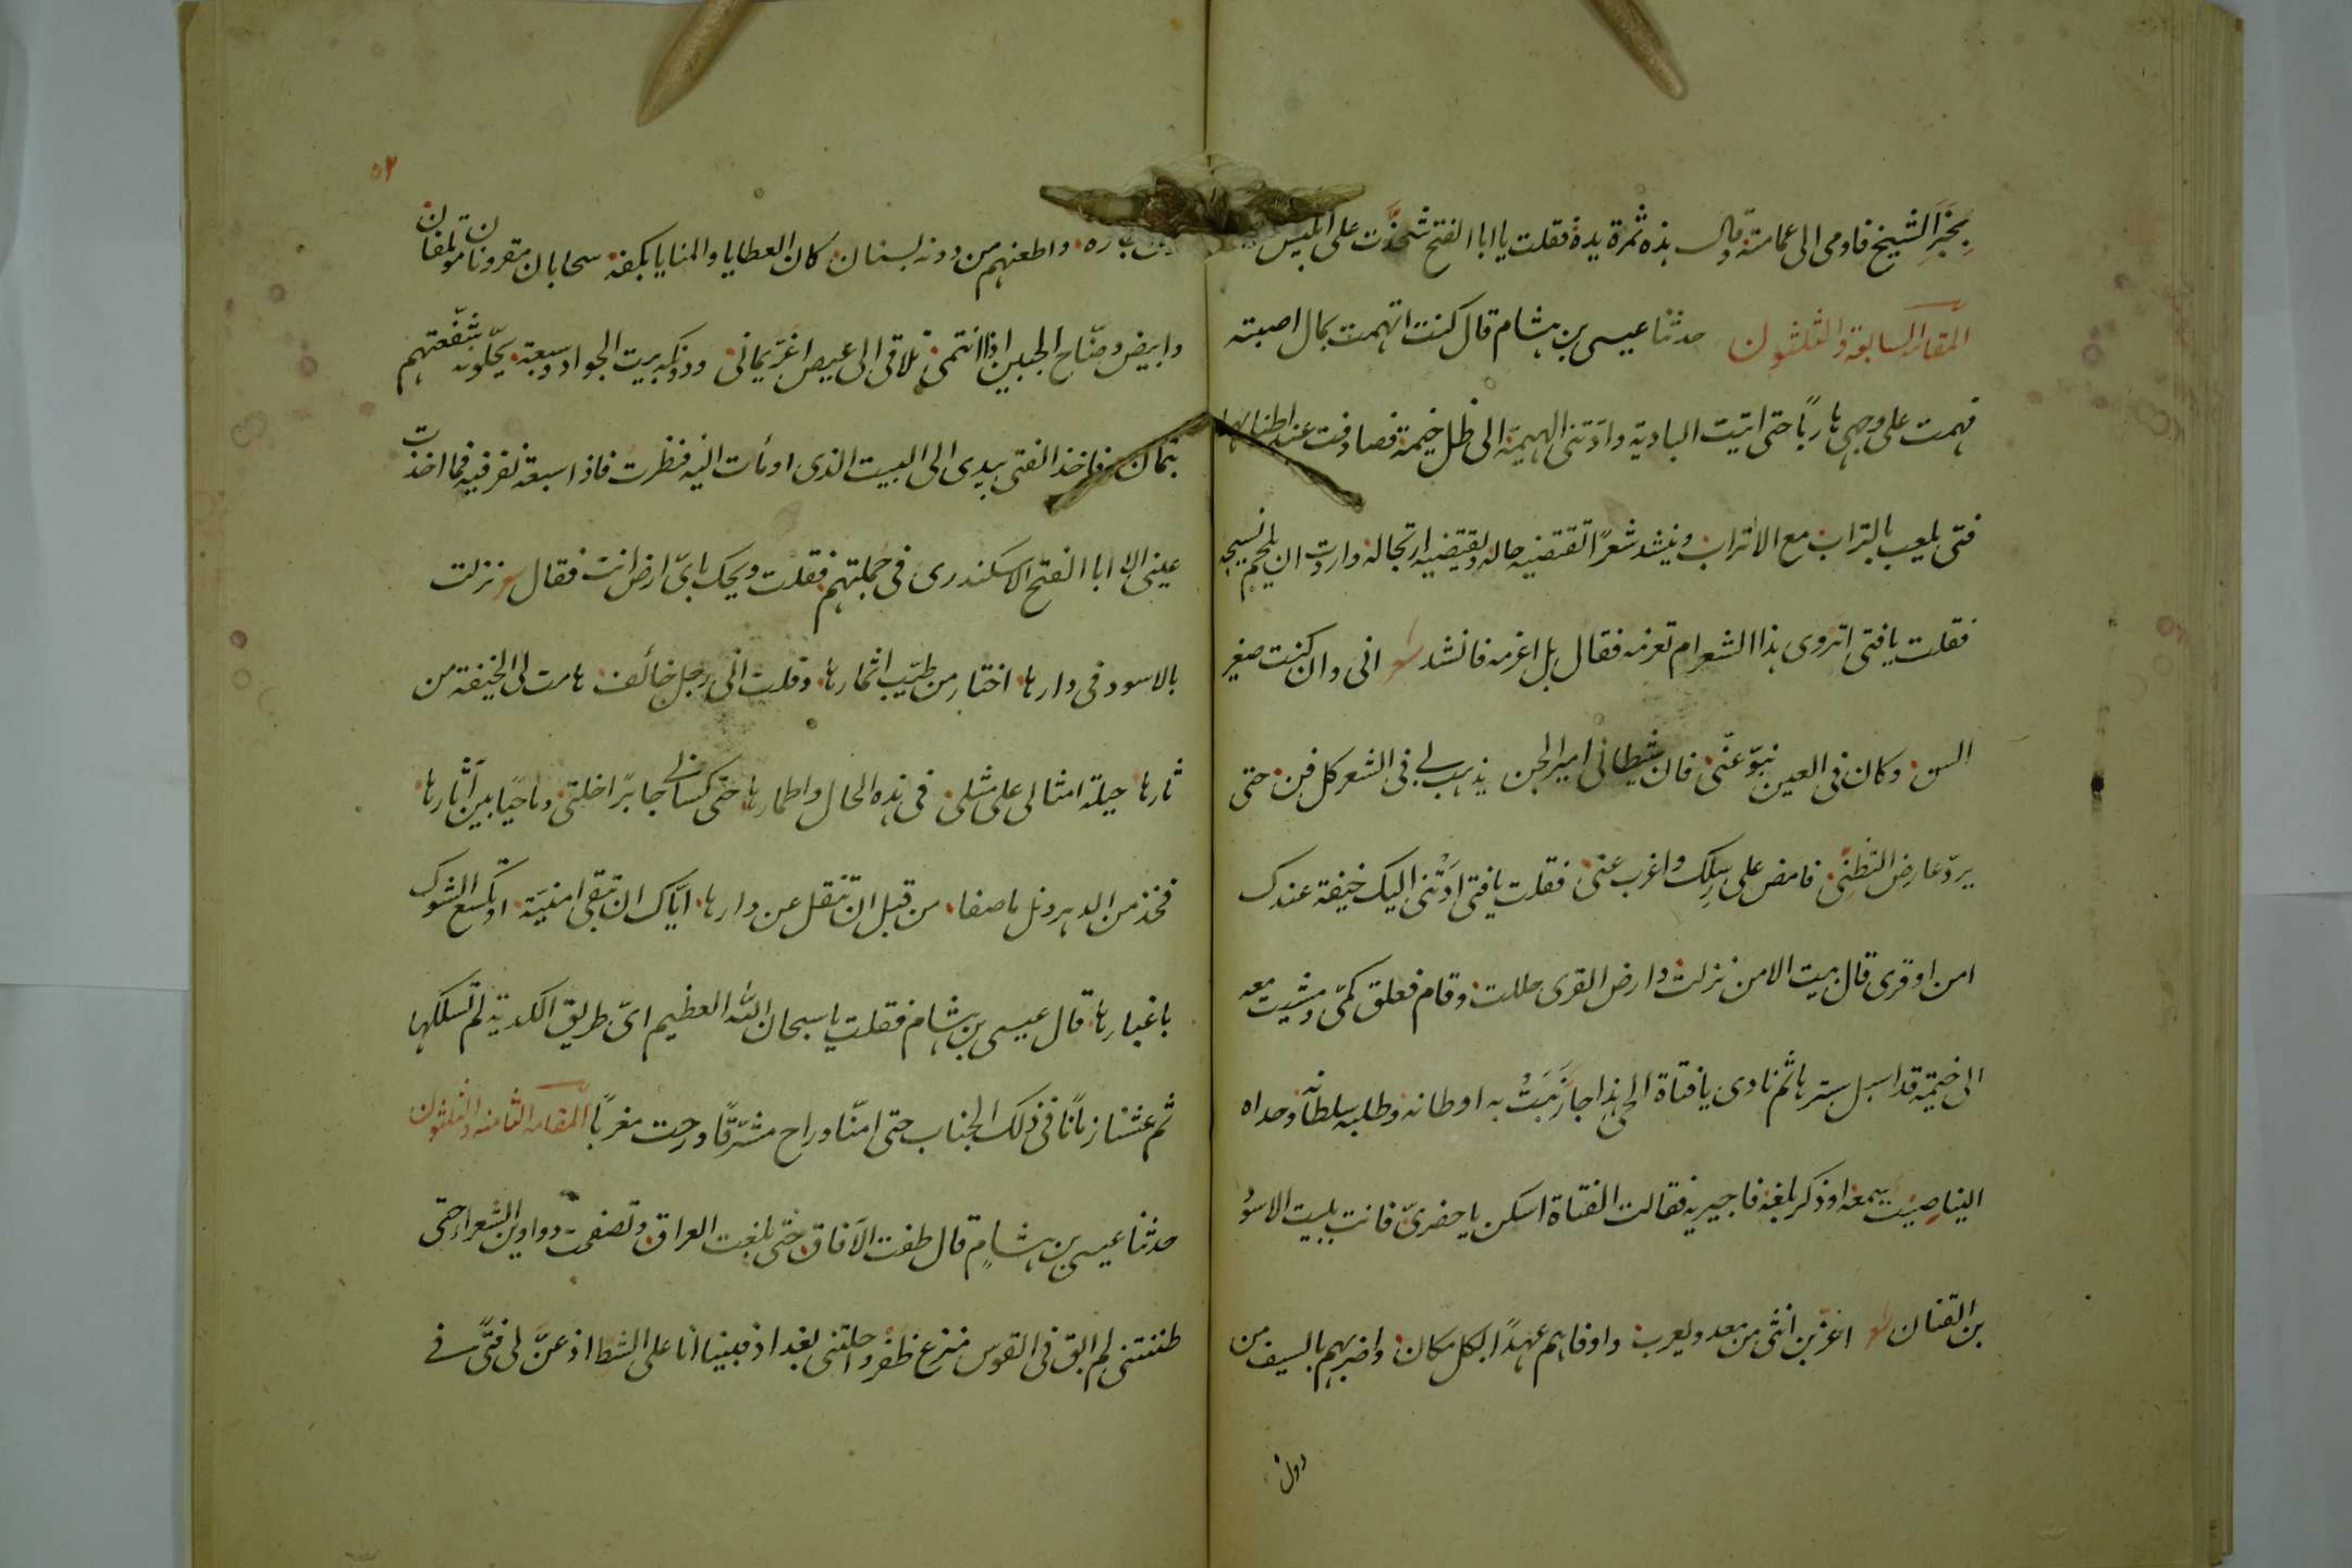 بخبر الشيخ فاومى الى عمامته وقال هذه ثمرة يده فقلت يا ابا الفتح شحذت على ابليس
المقامة السابعة والثلثون حدثنا عيسى بن هشام قال كنت اتهمت بمال اصبته
فهمت على وجهى هاربًا حتى اتيت البادية وادتنى الهيمة الى ظل خيمة فصادفت عند اطنابها
فتى يلعب بالتراب مع الاتراب وينشد شعرًا تقتضيه حاله ولا يقتضيه ارتجاله واردت ان يلحم نسيجه
فقلت يا فتى اتروى هذا الشعر ام تعزمه فقال بل اعزمه فانشد شعر انى وان كنت صغير
السن وكان فى العين نبوّ عنّى فان شيطانى امير الجن يذهب بى فى الشعر كل فن حتى
يردّ عارض التظنّى فامض على رسلك واغرب عنى فقلت يا فتى ادّتنى اليك خيفة عندك
امن او قرى قال بيت الامن نزلت وارض القرى حللت وقام فعلق كمّى ومشيت معه
الى خيمة قد اسبل سترها ثم نادى يا فتاة الحى هذا جار نبت به اوطانه وطلبه سلطانه وحداه
الينا صيت سمعه او ذكر بلغه فاجيريه فقالت الفتاة اسكن يا حضرىّ فانت ببيت الاسود
بن القنان شعر اعز بن انثى من معد ويعرب واوفاهم عهدًا بكل مكان واضربهم بالسيف من
دون
٥٢
جاره واطعنهم من دونه بسنان كان العطايا والمنايا بكفه سحابان مقرونان مؤتلفان
وابيض وضّاح الجبين اذا انتمى تلاقى الى عيص اغرّ يمانى ودونكه بيت الجوار وسبعة يحلّونه شفّعتهم
بثمان فاخذ الفتى بيدى الى البيت الذى اومأت اليه فنظرت فاذا سبعة نفر فيه فما اخذت
عينى الا ابا الفتح الاسكندرى فى جملتهم فقلت ويحك باىّ ارض انت فقال شعر نزلت
بالاسود فى دارها اختار من طيّب اثمارها وقلت انى رجل خائف هامت لى الخيفة من
ثارها حيلة امثالى على مثلى فى هذه الحال واطمارها حتى كسانى جابرًا خلتى وماحيًا بيّن آثارها
فخذ من الدهر ونل ما صفا من قبل ان تنقل عن دارها ايّاك ان تبقى امنيّة او تكسع الشول
باغبارها قال عيسى بن هشام فقلت يا سبحان الله العظيم اىّ طريق الكدية لم تسلكها
ثم عشنا زمانًا فى ذلك الجناب حتى امنّا وراح مشرّقًا ورحت مغربًا المقامة الثامنة والثلثون
حدثنا عيسى بن هشام قال طفت الآفاق حتى بلغت العراق وتصفحت دواوين الشعراء حتى
ظننتنى لم ابق فى القوس منزع ظفر واحلتنى بغداذ فبينا انا على الشطّ اذ عنّ لى فتًى فى